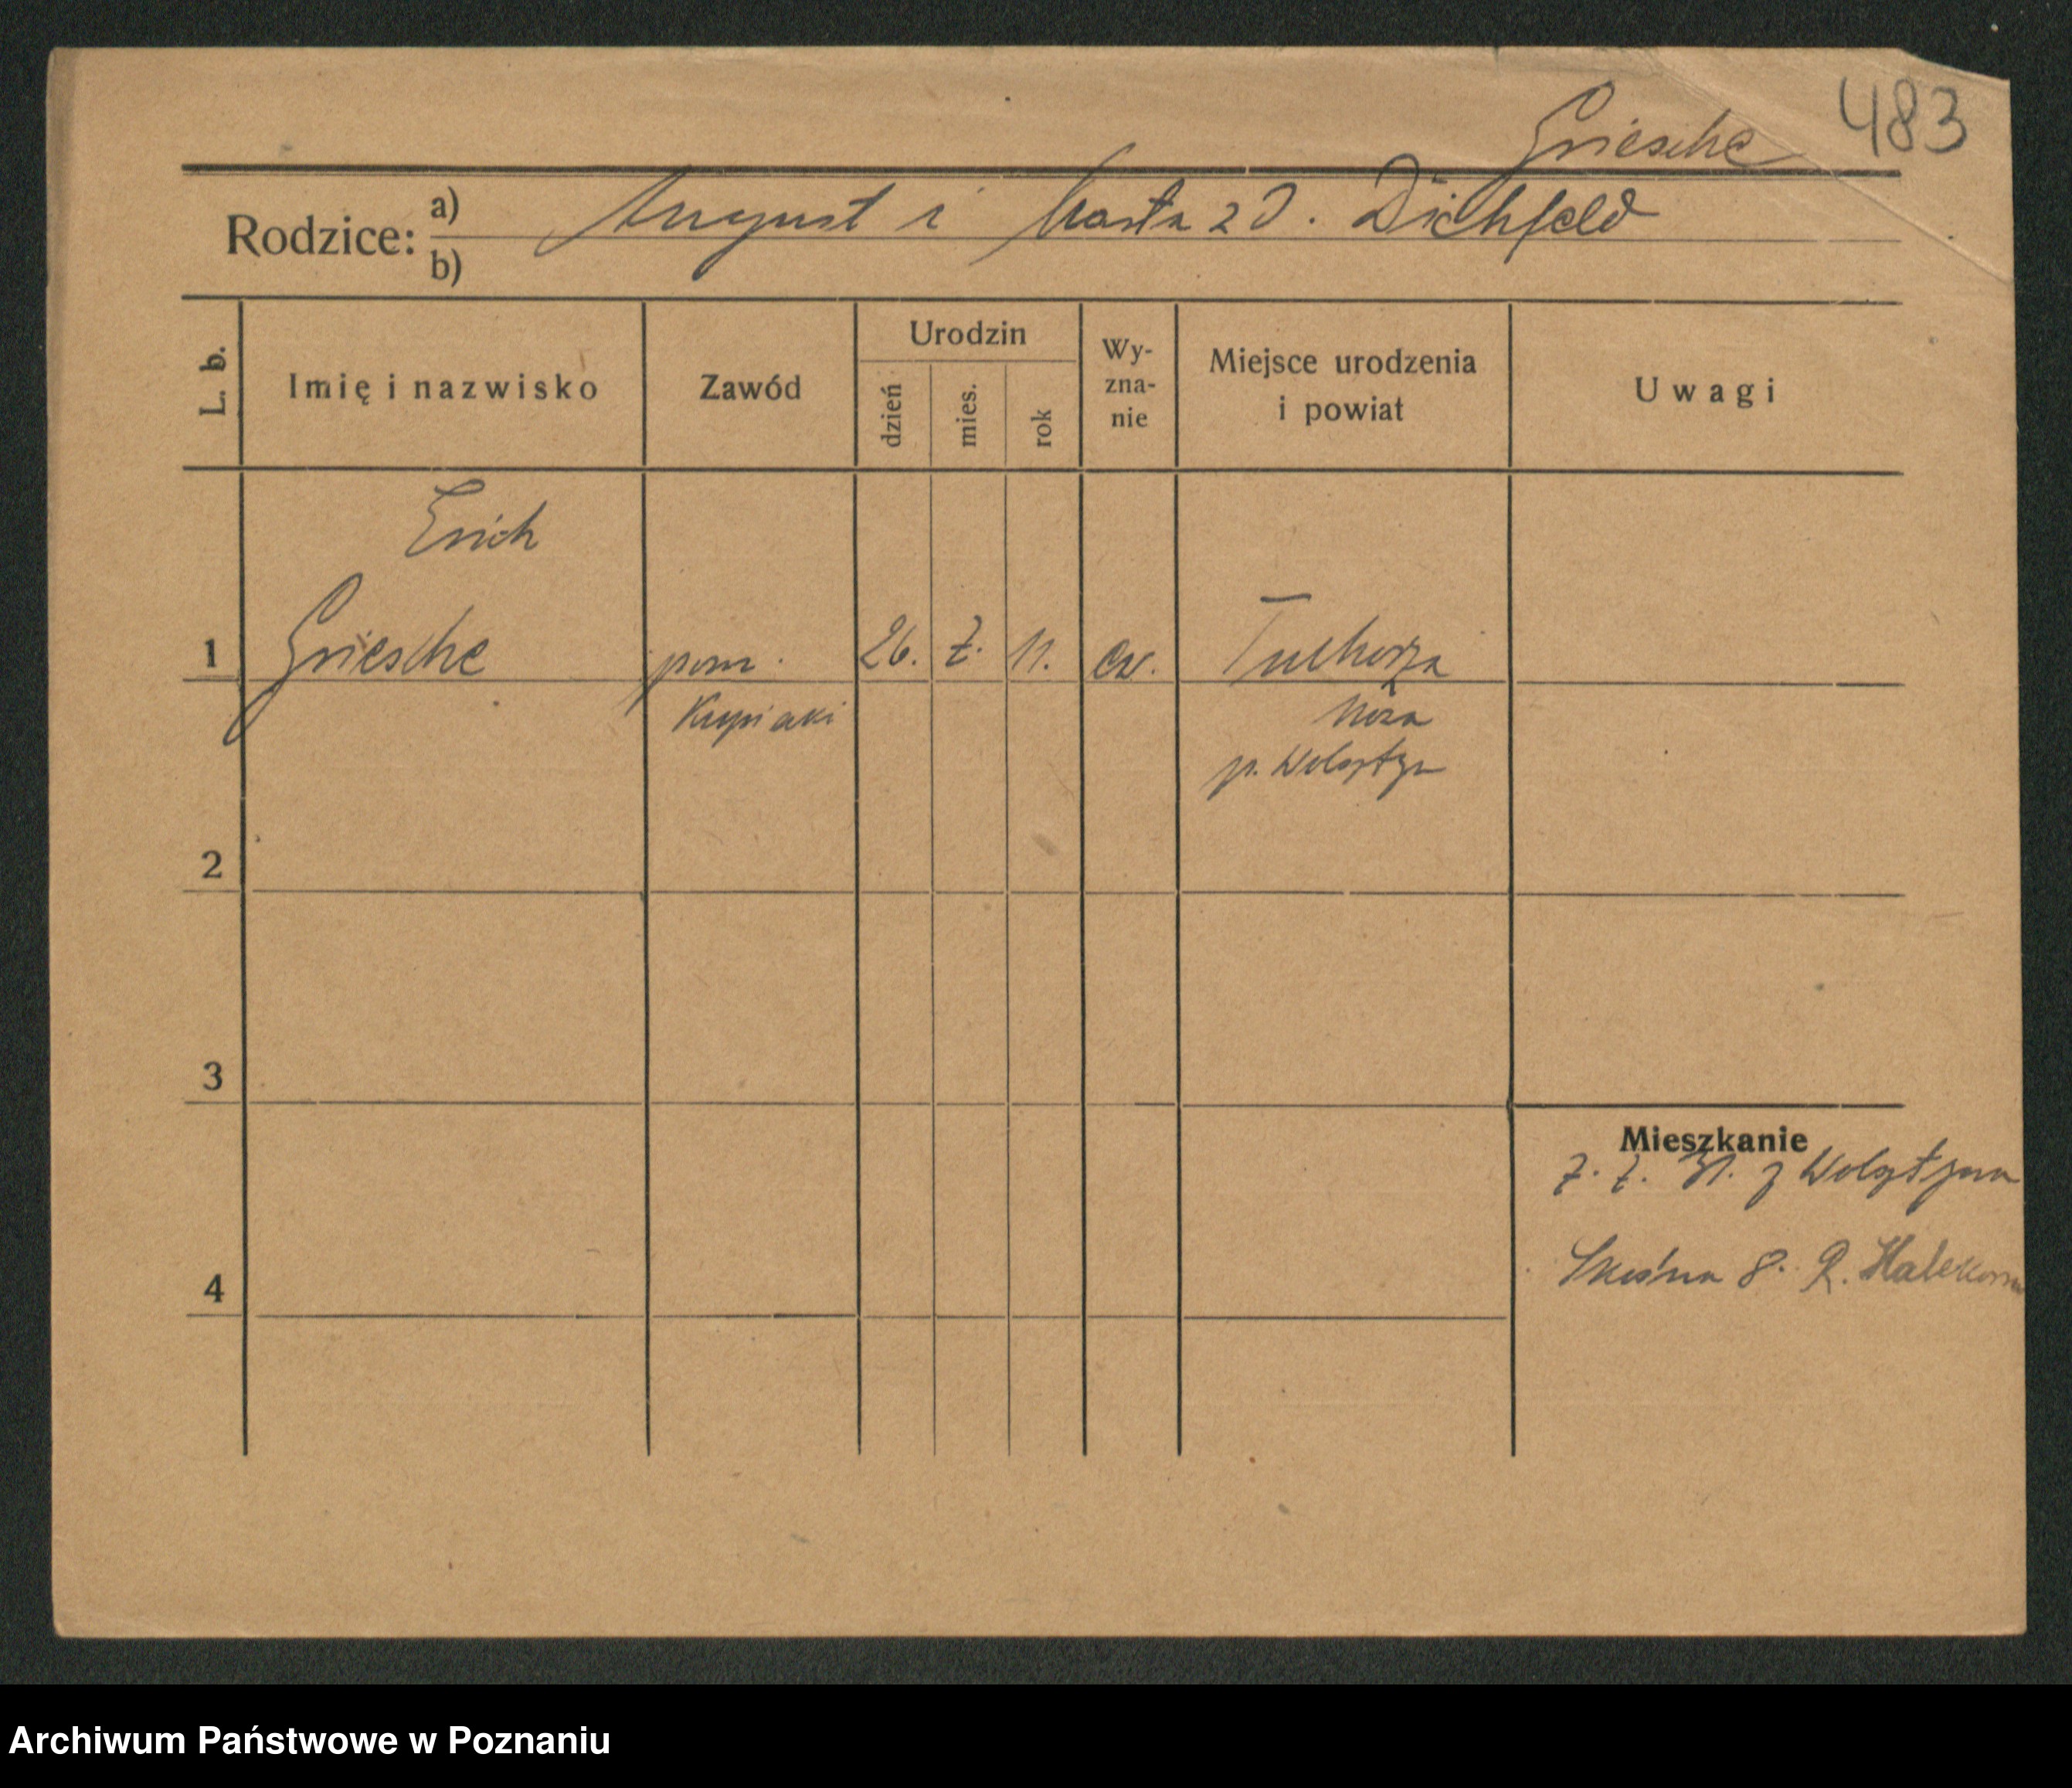 483
Griesche
Rodzice: a) August i Marta z d. Dichfeld
b)
L. b.
Imię i nazwisko
Zawód
Urodzin
dzień
mies.
rok
Wy-
zna-
nie
Miejsce urodzenia
i powiat
Uwagi
Erich
1 Griesche pom. 26. 2. 11. ew. Tuchorza
Kupiecki
p. Wolsztyn
2
3
Mieszkanie
31. z Wolsztyna
4
8. R.
Archiwum Państwowe w Poznaniu